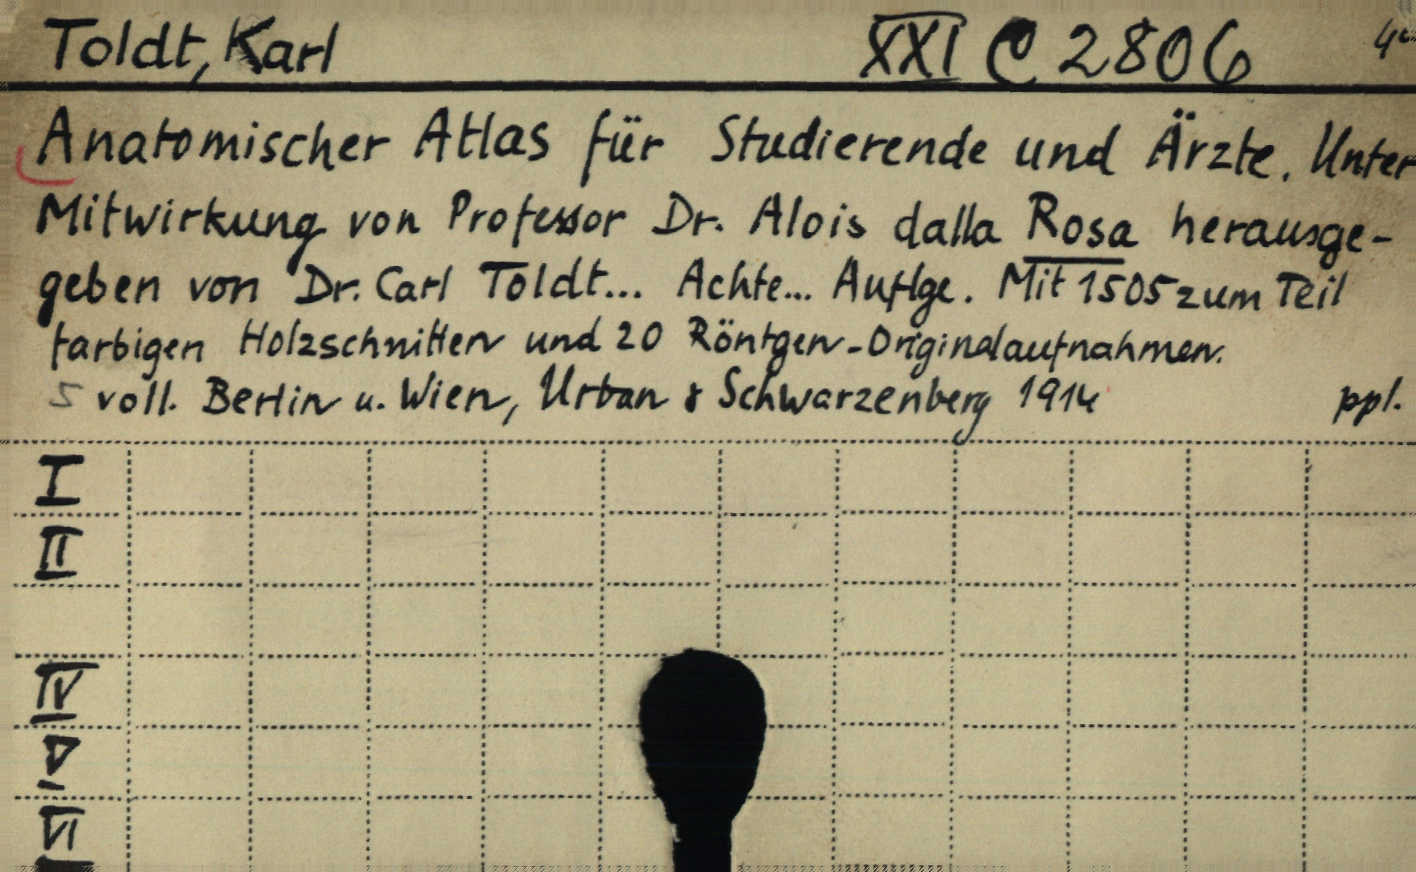 Toldt, Karl XXI C 2806 4°
Anatomischer Atlas für Studierende und Ärzte. Unter
Mitwirkung von Professor Dr. Alois dalla Rosa herausge-
geben von Dr. Carl Toldt... Achte... Auflge. Mit 1505 zum Teil
farbigen Holzschnitten und 20 Röntgen-Originalaufnahmen.
5 voll. Berlin u. Wien, Urban & Schwarzenberg 1914 ppl.
I
II
IV
V
VI